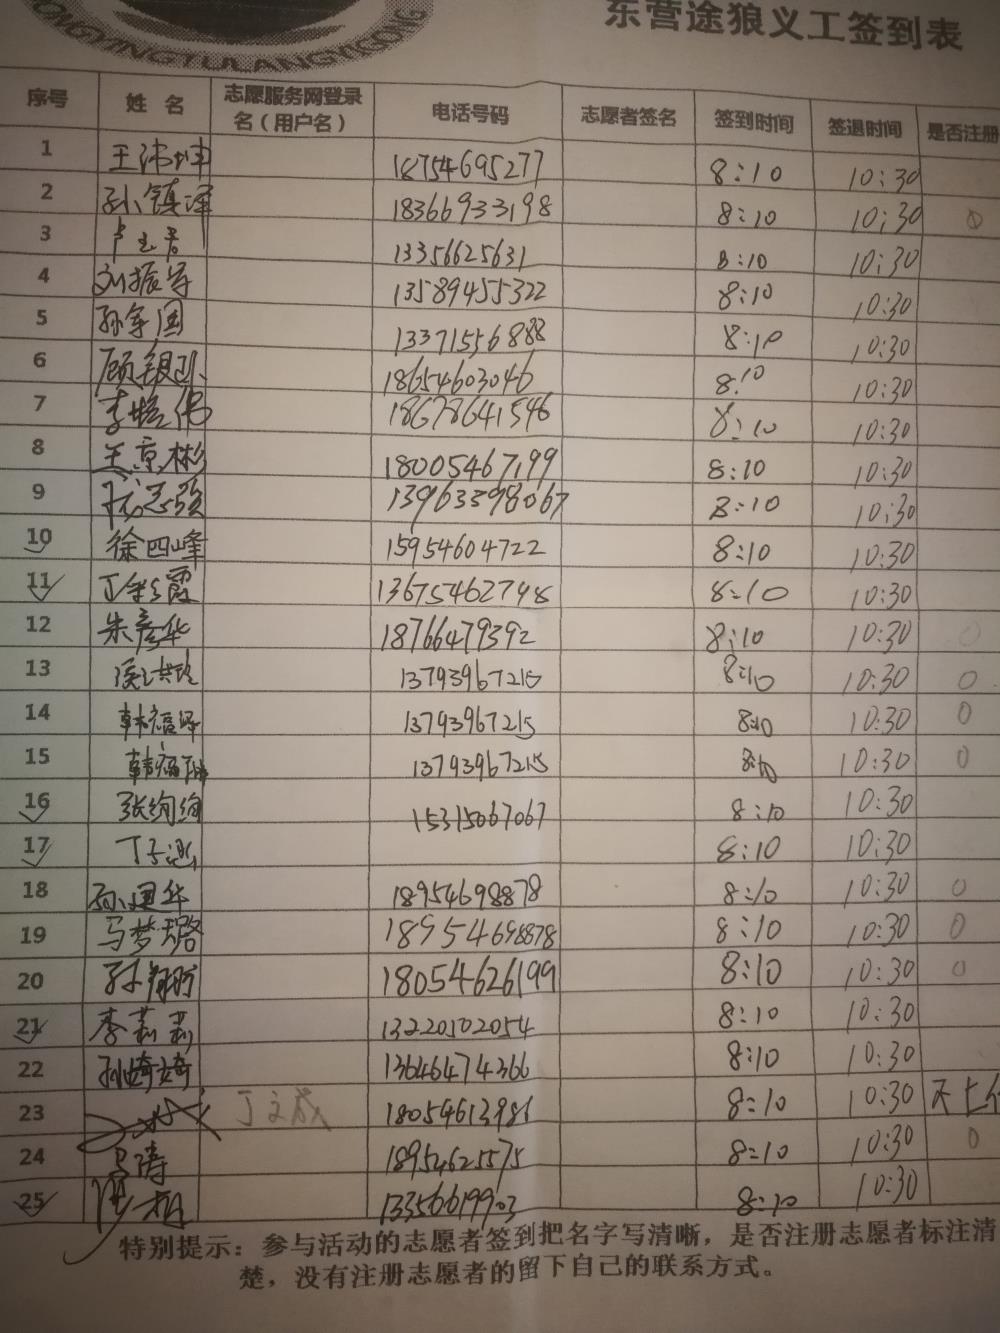 东营途狼义工签到表
DONGYINGTULANGYIGONG
序号 姓 名 志愿服务网登录名（用户名） 电话号码 志愿者签名 签到时间 签退时间 是否注册
1 18754695277 8:10 10:30
2 孙镇泽 18366933198 8:10 10:30
3 13356625631 8:10 10:30
4 刘振军 13589455322 8:10 10:30
5 孙军国 13371556888 8:10 10:30
6 18654603046 8:10 10:30
7 18678641546 8:10 10:30
8 王京彬 18005467199 8:10 10:30
9 13963398067 8:10 10:30
10 徐四峰 15954604722 8:10 10:30
11 13675462798 8:10 10:30
12 朱彦华 18766479392 8:10 10:30 0
13 13793967215 8:10 10:30 0
14 韩福泽 13793967215 8:10 10:30 0
15 13793967215 8:10 10:30 0
16 张绚绚 15315067067 8:10 10:30
17 丁子涵 8:10 10:30
18 孙建华 18954698878 8:10 10:30 0
19 马梦璐 18954698878 8:10 10:30 0
20 18054626199 8:10 10:30 0
21 李莉莉 13220102054 8:10 10:30
22 孙琦琦 13646474366 8:10 10:30
23 18054613981 8:10 10:30
24 马涛 18954625575 8:10 10:30 0
25 13356619903 8:10 10:30
特别提示：参与活动的志愿者签到把名字写清晰，是否注册志愿者标注清
楚，没有注册志愿者的留下自己的联系方式。